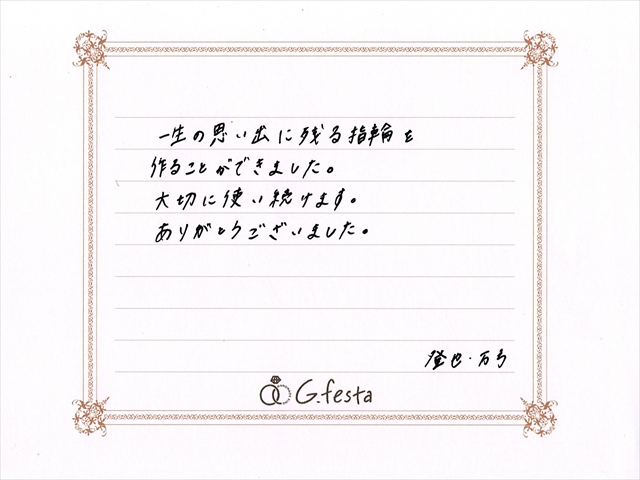 一生の思い出に残る指輪を
作ることができました。
大切に使い続けます。
ありがとうございました。
登也・万弓
G.festa